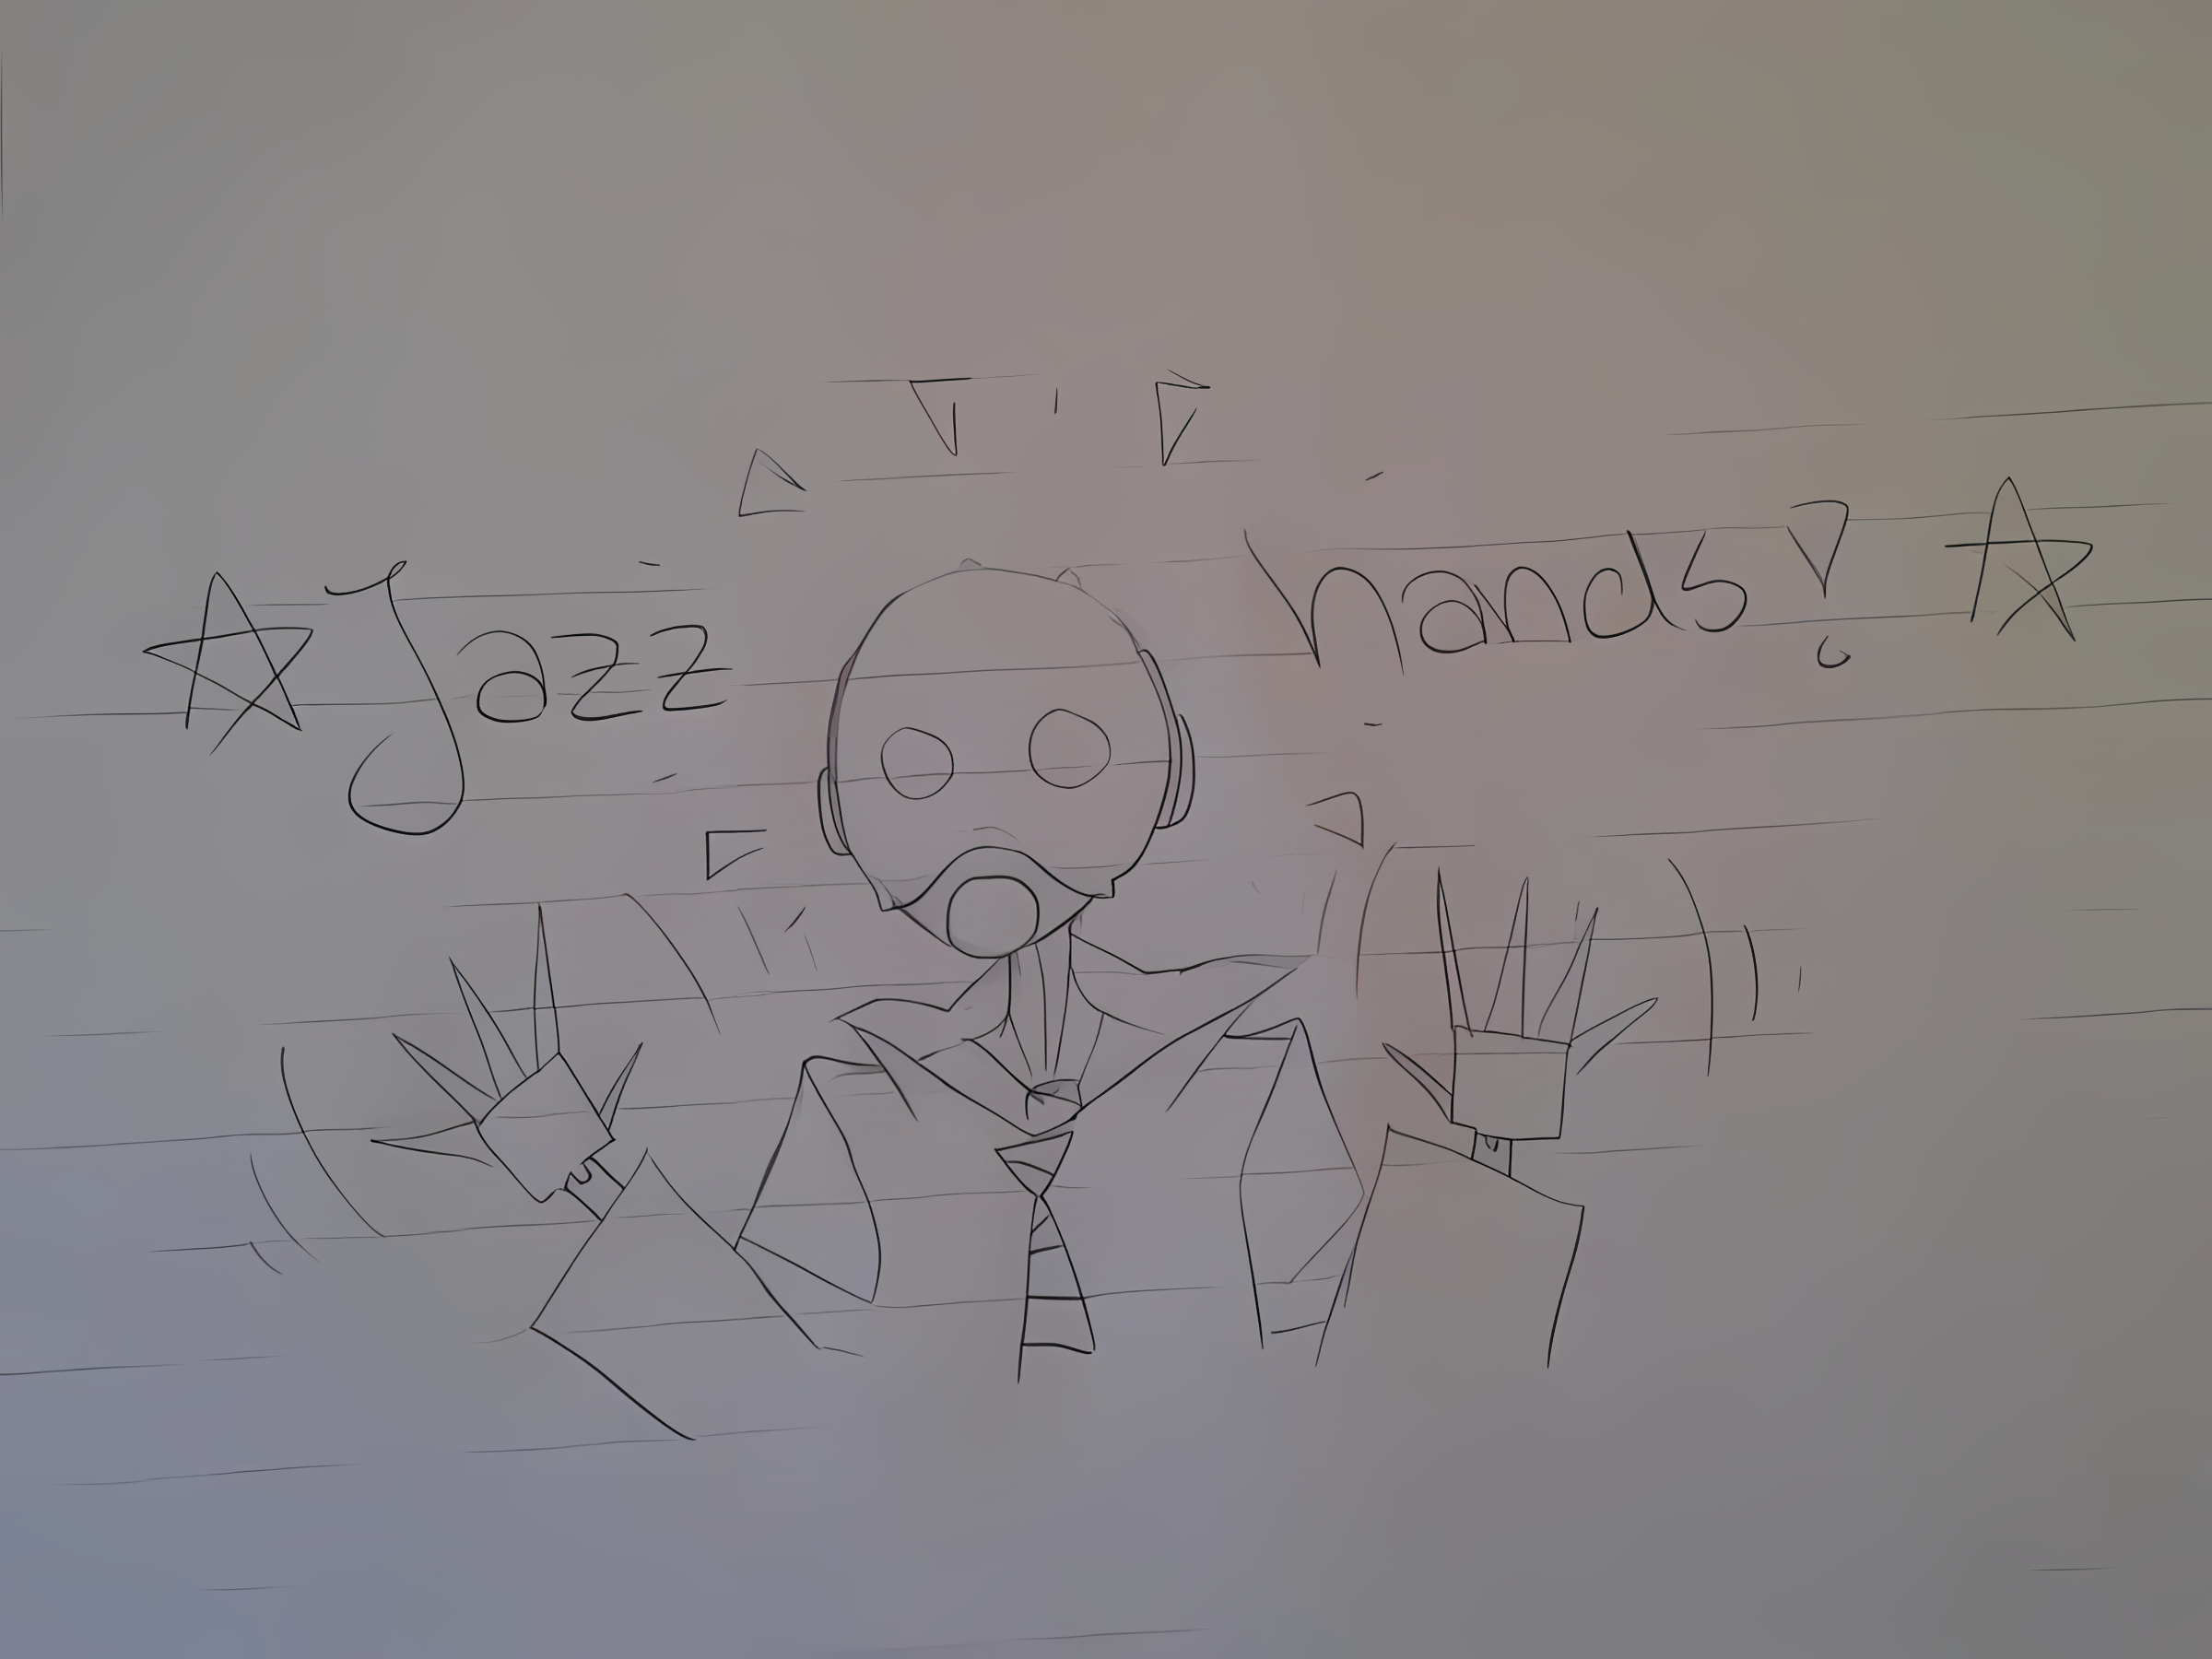 Jazz hands!